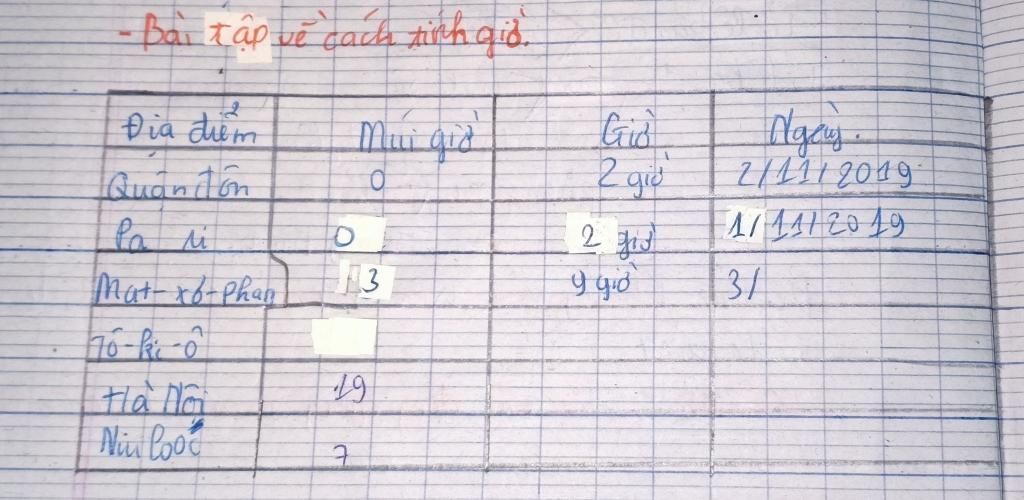 - Bài tập về cách tính giờ.
Địa điểm Múi giờ Giờ Ngày.
Quận đôn 0 2 giờ 2/11/2019
Pa li 0 2 giờ 1/11/2019
Mat-xơ-phan 3 9 giờ 3/
Tô-ki-ô
Hà Nội 19
Niu looc 7